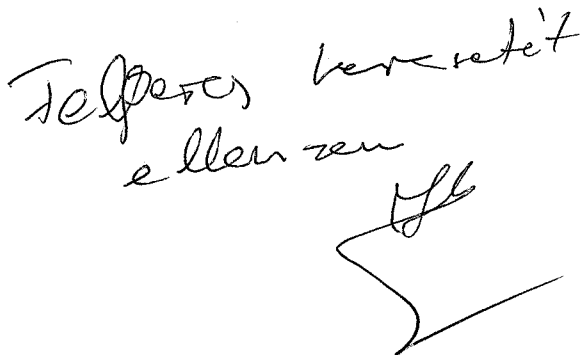 Felperes keresetét
ellenzem